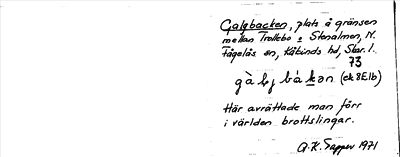 Galgbacken, plats å gränsen
mellan Trollebo o Stenalmen, N.
Fågelås sn, Kåkinds hd, Skar. l.
73
gàlgbàkən (ek 8E1b)
Här avrättade man förr
i världen brottslingar.
G.K. Tapper 1971